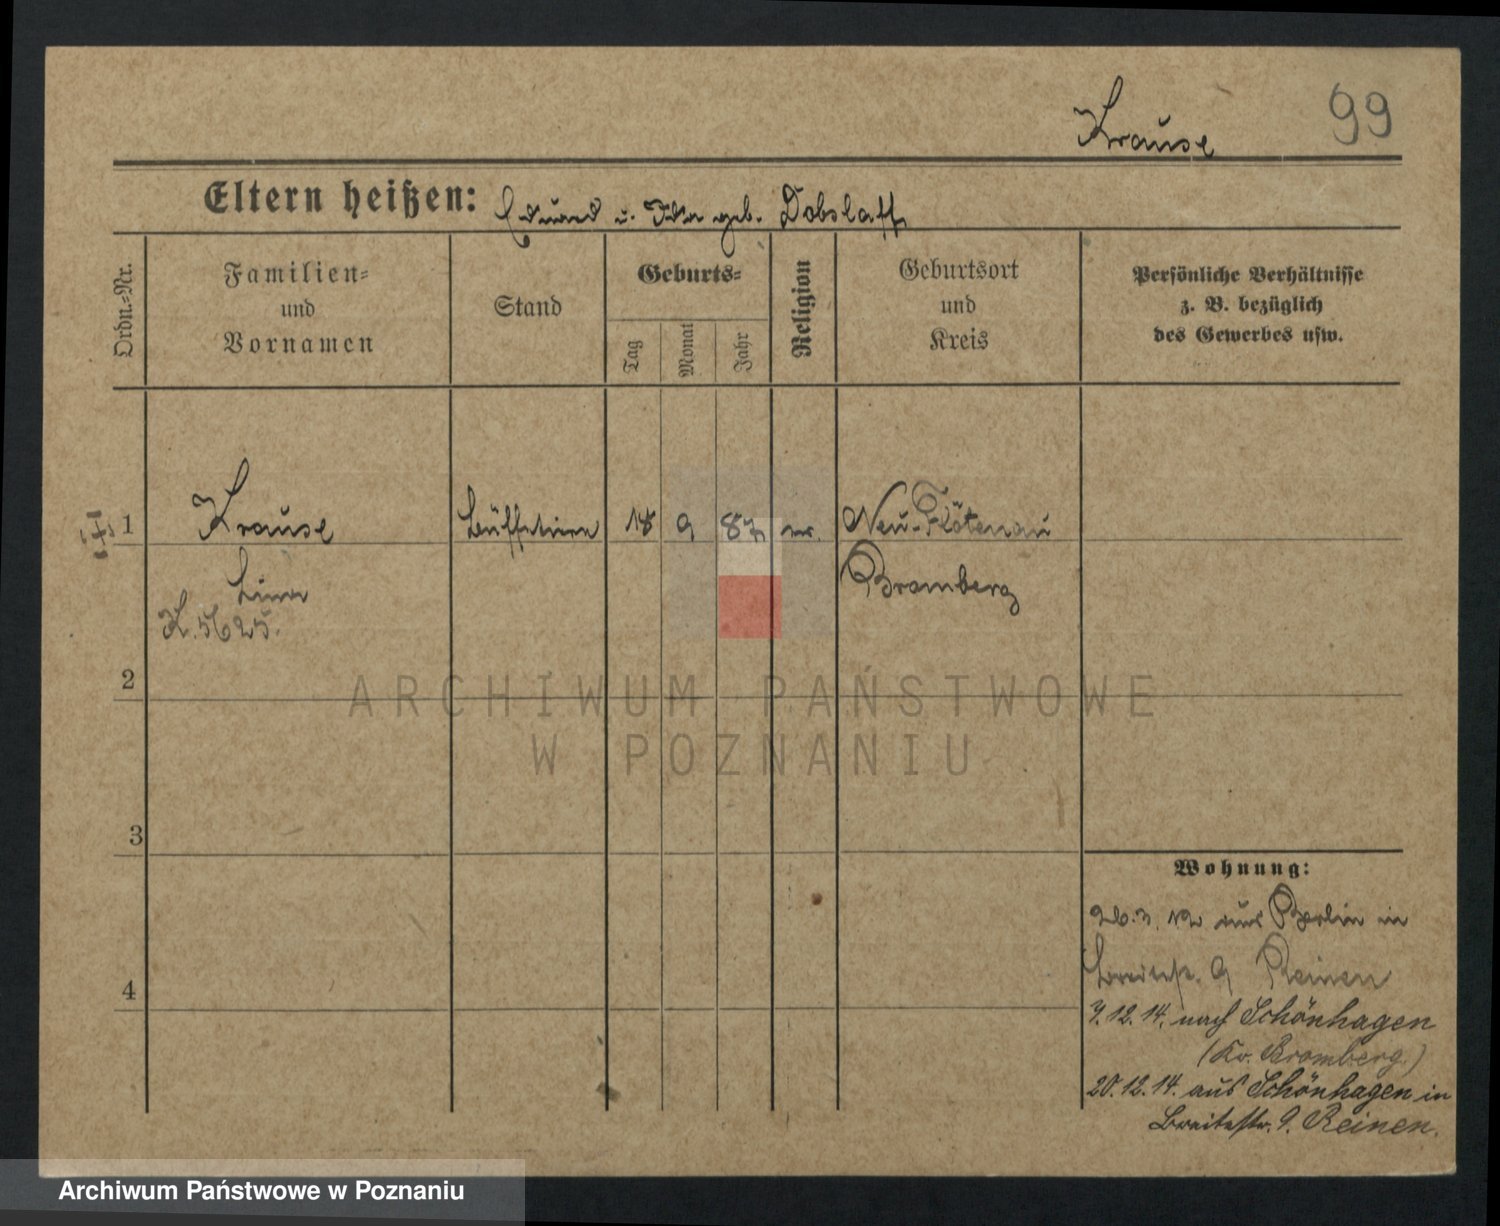 Krause 99
Eltern heißen: Eduard u. Ida geb. Dobslaff
Ordn.=Nr.
Familien=
und
Vornamen
Stand
Geburts=
Tag
Monat
Jahr
Religion
Geburtsort
und
Kreis
Persönliche Verhältnisse
z. B. bezüglich
des Gewerbes usw.
1 Krause Büffetiere 18 9 87 ev. Neu-Flötenau
Bromberg
K. 5625.
2
ARCHIWUM PAŃSTWOWE
W POZNANIU
3
4
Wohnung:
26.3.12 aus Berlin in
Breitestr. 9 Reinen
7.12.14. nach Schönhagen
(Kr. Bromberg.)
20.12.14. aus Schönhagen in
Breitestr. 9. Reinen.
Archiwum Państwowe w Poznaniu